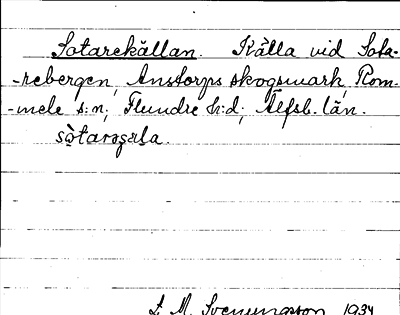 Sotarekällan. Källa vid Sota-
-rebergen, Anstorps skogsmark, Rom-
-mele s:n, Flundre h:d, Älfsb. län.
L. M. Svenungsson 1934